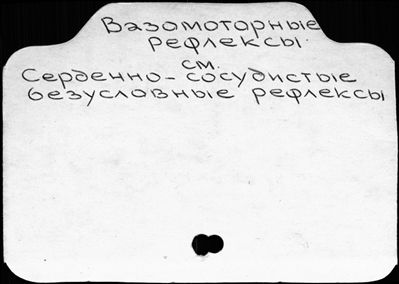 Вазомоторные
рефлексы.
см.
Серденно-сосудистые
безусловные рефлексы